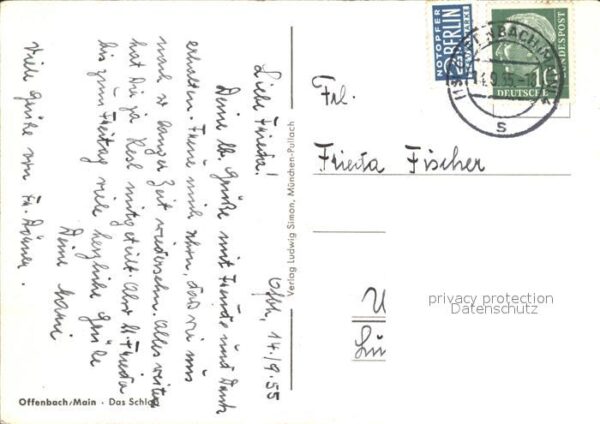 Offb., 14./9.55
Liebe Frieda!
Deine lb. Grüße mit Freude und Dank
erhalten. Freue mich schon, daß wir uns
nach so langer Zeit wiedersehn. Alles weitere
hat Dir ja Resl mitgeteilt. Also ll. Frieda
bis zum Freitag viele herzliche Grüße
Deine
Viele Grüße von Fr.
Offenbach/Main · Das Schloß
Verlag Ludwig Simon, München-Pullach
NOTOPFER
2 BERLIN
STEUERMARKE
10
DEUTSCHE
BUNDESPOST
OFFENBACH
14.9.55
S
Frl.
Frieda Fischer
privacy protection
Datenschutz